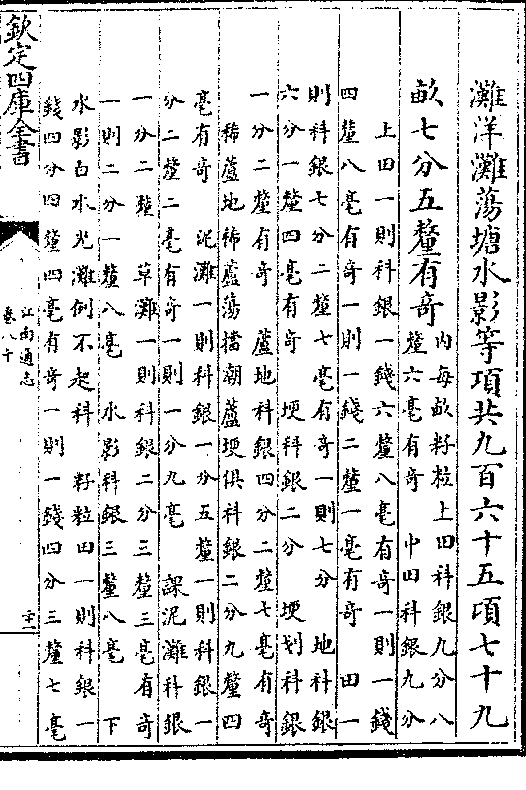 灘洋灘蕩塘水影等項共九百六十五項七十九
畝七分五釐有奇
內每畝籽粒上田科銀九分八
釐六毫有奇　中田科銀九分
上田一則科銀一錢六釐八毫有奇一則一錢
四釐八毫有奇一則一錢二釐一毫有奇　田一
則科銀七分二釐七毫有奇一則七分　地科銀
六分一釐四毫有奇　埂科銀二分　埂划科銀
一分二釐有奇　蘆地科銀四分二釐七毫有奇
稀蘆地稀蘆蕩擋潮蘆埂俱科銀二分九釐四
毫有奇　泥灘一則科銀一分五釐一則科銀一
分二釐二毫有奇一則一分九毫　課泥灘科銀
一分二釐　草灘一則科銀二分三釐三毫有奇
一則二分一釐八毫　水影科銀三釐八毫　下
水影白水光灘例不起科　籽粒田一則科銀一
錢四分四釐四毫有奇一則一錢四分三釐七毫
欽定四庫全書
江南通志
卷八十